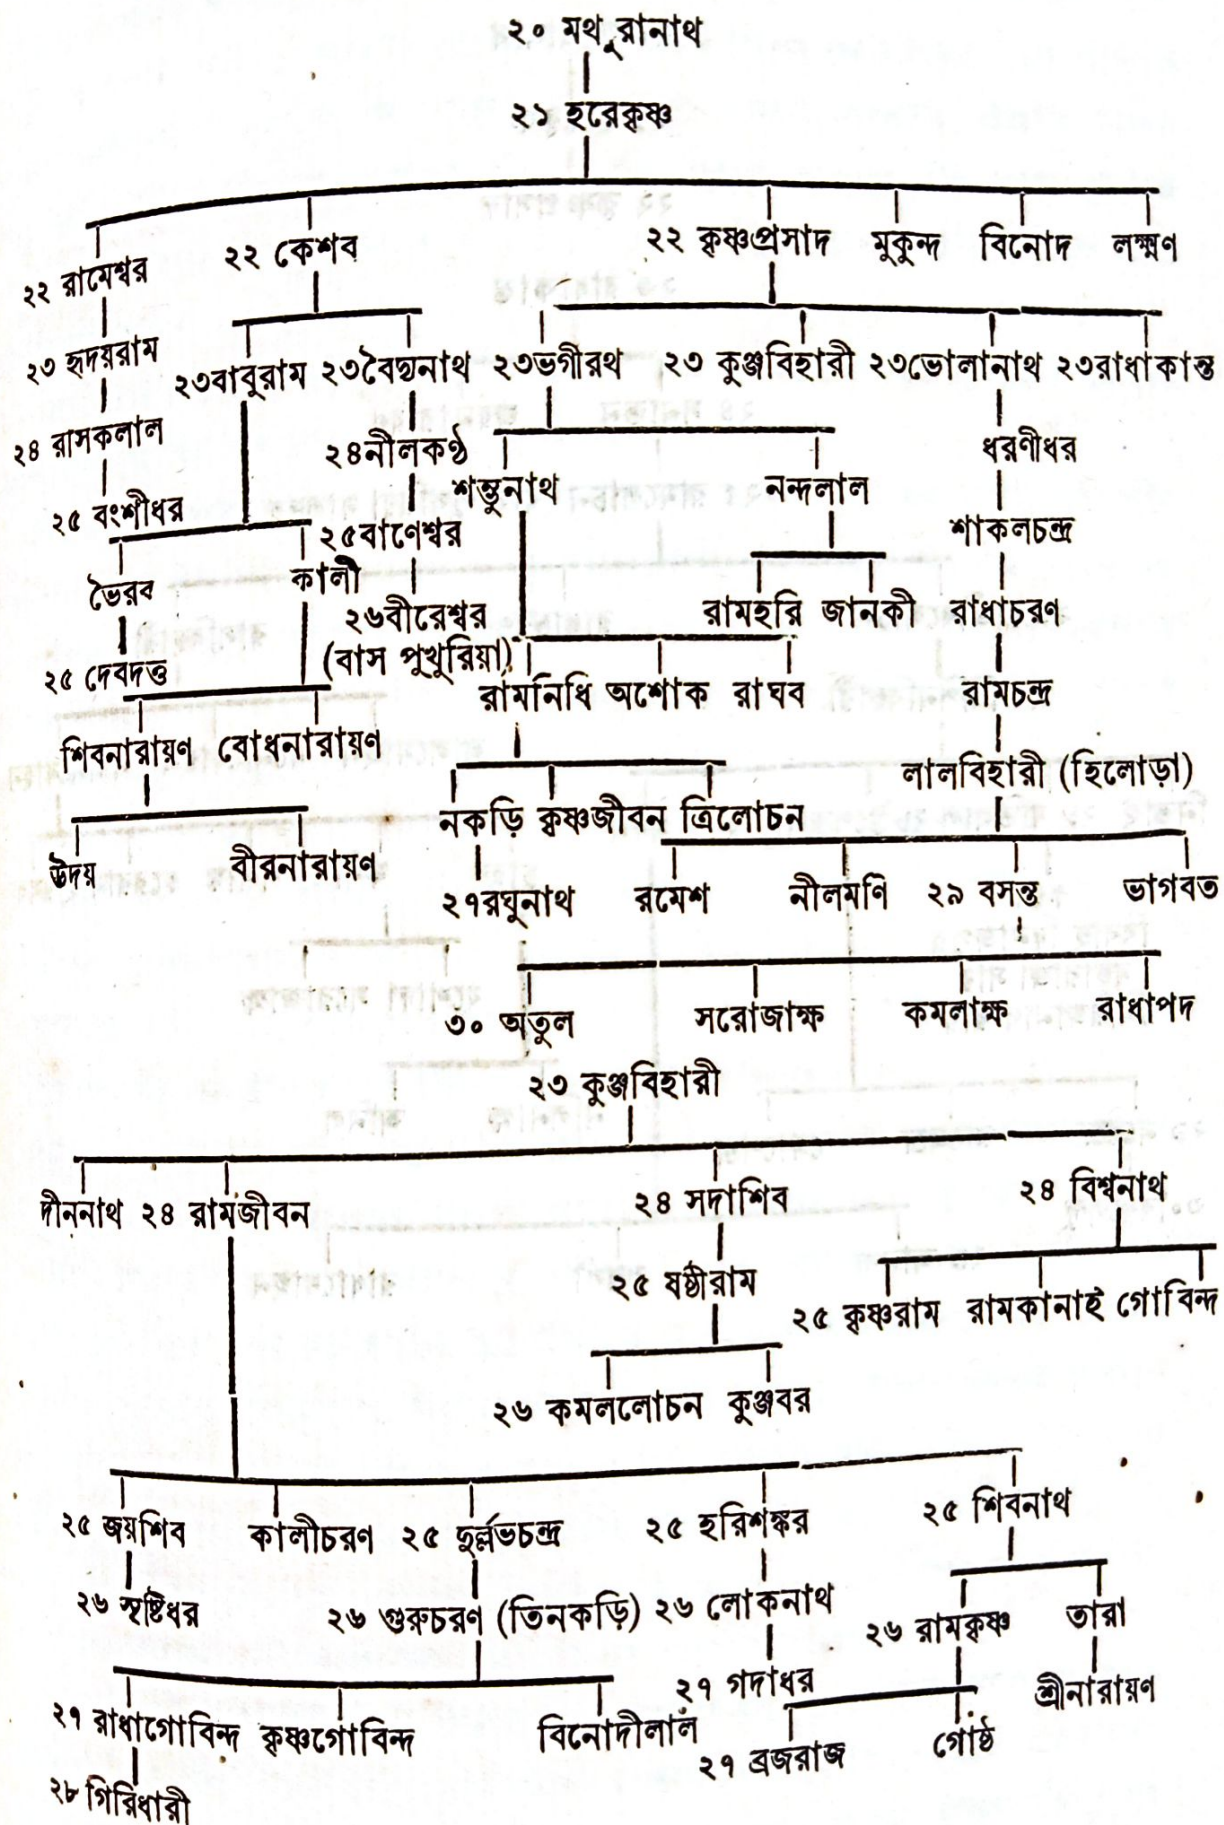 ২০ মথুরানাথ
২১ হরেকৃষ্ণ
২২ রামেশ্বর ২২ কেশব ২২ কৃষ্ণপ্রসাদ মুকুন্দ বিনোদ লক্ষ্মণ
২৩ হৃদয়রাম ২৩বাবুরাম ২৩বৈদ্যনাথ ২৩ভগীরথ ২৩ কুঞ্জবিহারী ২৩ভোলানাথ ২৩রাধাকান্ত
২৪ রাসকলাল ২৪নীলকণ্ঠ শম্ভুনাথ নন্দলাল ধরণীধর
২৫ বংশীধর ২৫বাণেশ্বর শাকলচন্দ্র
ভৈরব কালী ২৬বীরেশ্বর রামহরি জানকী রাধাচরণ
(বাস পুখুরিয়া)
২৫ দেবদত্ত রামনিধি অশোক রাঘব রামচন্দ্র
শিবনারায়ণ বোধনারায়ণ লালবিহারী (হিলোড়া)
নকড়ি কৃষ্ণজীবন ত্রিলোচন
উদয় বীরনারায়ণ ২৭রঘুনাথ রমেশ নীলমণি ২৯ বসন্ত ভাগবত
৩০ অতুল সরোজাক্ষ কমলাক্ষ রাধাপদ
২৩ কুঞ্জবিহারী
দীননাথ ২৪ রামজীবন ২৪ সদাশিব ২৪ বিশ্বনাথ
২৫ ষষ্ঠীরাম ২৫ কৃষ্ণরাম রামকানাই গোবিন্দ
২৬ কমললোচন কুঞ্জবর
২৫ জয়শিব কালীচরণ ২৫ দুর্ল্লভচন্দ্র ২৫ হরিশঙ্কর ২৫ শিবনাথ
২৬ সৃষ্টিধর ২৬ গুরুচরণ (তিনকড়ি) ২৬ লোকনাথ ২৬ রামকৃষ্ণ তারা
২৭ গদাধর শ্রীনারায়ণ
২৭ রাধাগোবিন্দ কৃষ্ণগোবিন্দ বিনোদীলাল ২৭ ব্রজরাজ গোষ্ঠ
২৮ গিরিধারী